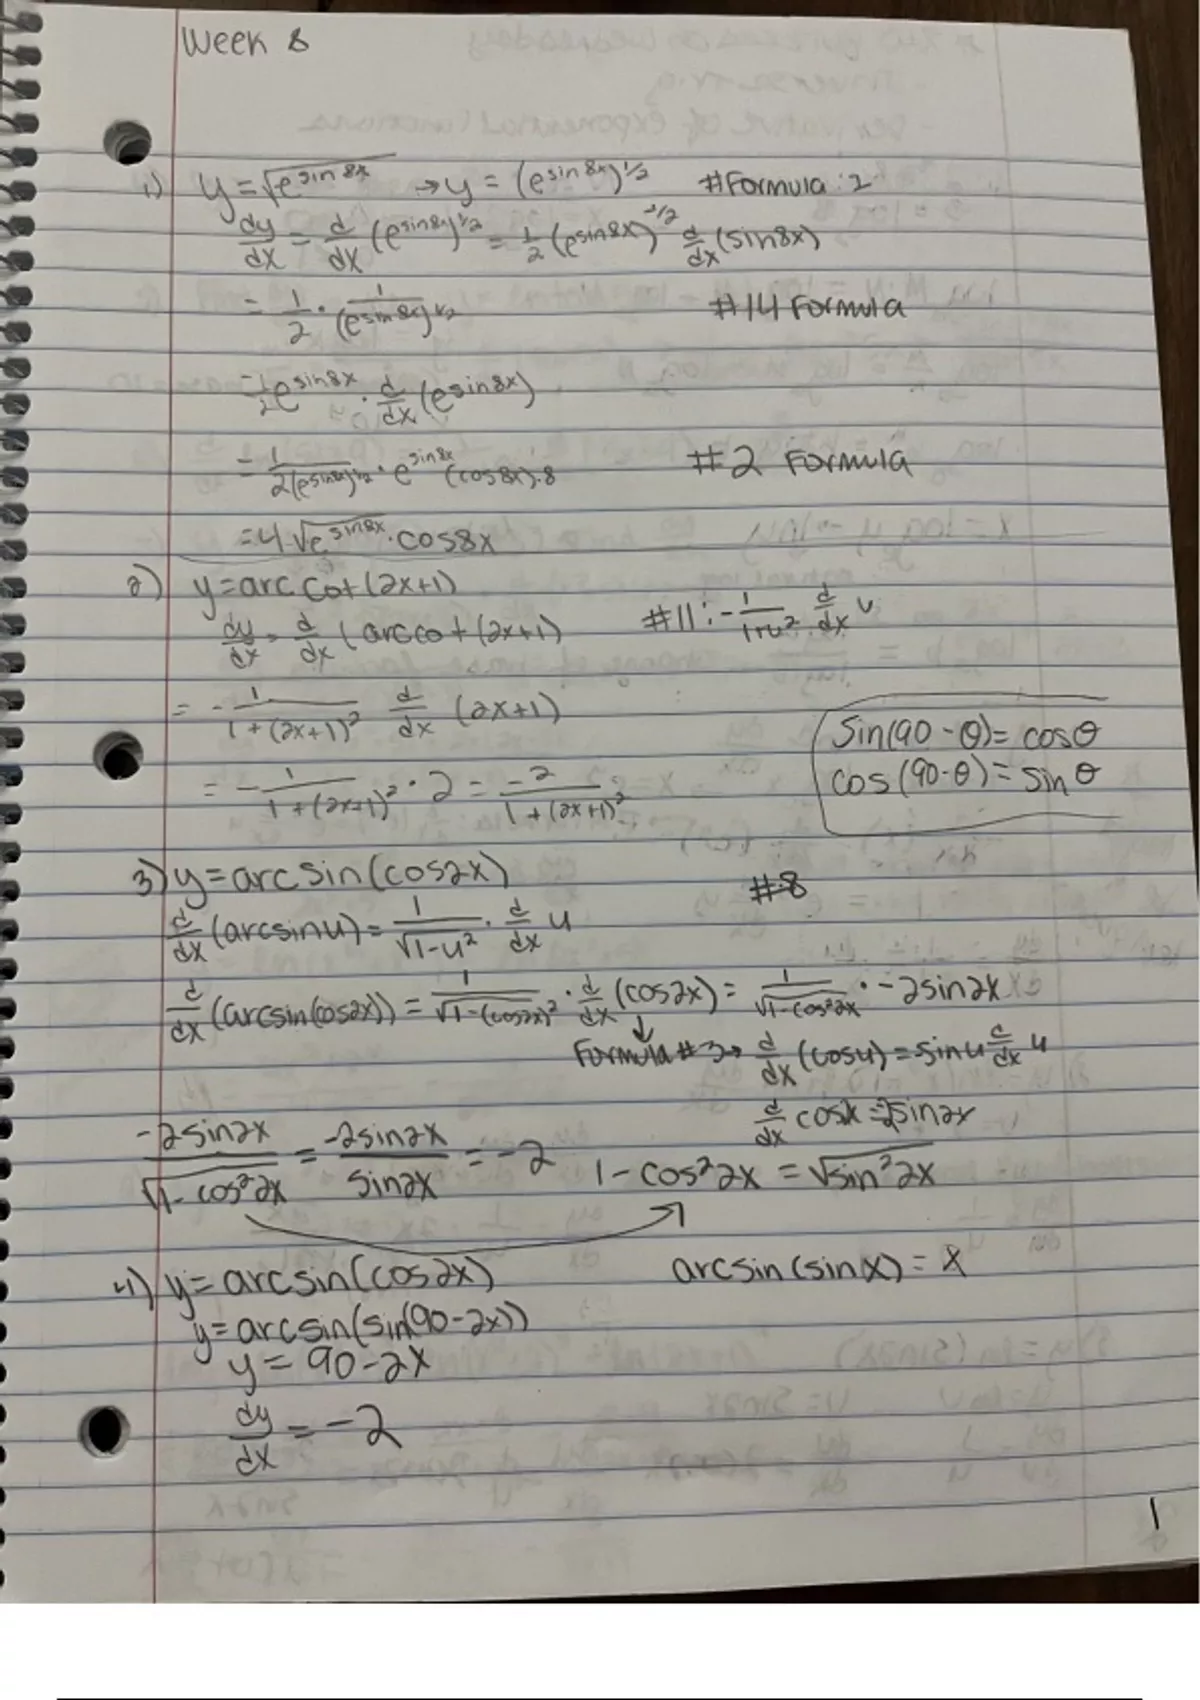 Week 8
1) y = √e^sin 8x → y = (e^sin 8x)^1/2 #Formula: 2
dy/dx = d/dx (e^sin8x)^1/2 = 1/2 (e^sin8x)^-1/2 d/dx (sin8x)
= 1/2 · 1/(e^sin 8x)^1/2 #14 Formula
= 1/2 e^sin8x · d/dx (e^sin8x)
= 1/2(e^sin8x)^1/2 · e^sin8x (cos8x)·8 #2 Formula
= 4√e^sin8x · cos8x
2) y = arc cot (2x+1)
dy/dx = d/dx (arccot (2x+1) #11: - 1/1+u² d/dx u
= - 1/1+(2x+1)² d/dx (2x+1)
Sin(90-θ) = cosθ
cos(90-θ) = sinθ
= - 1/1+(2x+1)² · 2 = -2/1+(2x+1)²
3) y = arcsin(cos2x) #8
d/dx (arcsinu) = 1/√1-u² · d/dx u
d/dx (arcsin(cos2x)) = 1/√1-(cos2x)² · d/dx (cos2x) = 1/√1-cos²2x · -2sin2x
↓
Formula #3→ d/dx (cosu) = sinu d/dx u
-2sin2x/√1-cos²2x = -2sin2x/sin2x = -2 1-cos²2x = √sin²2x
4) y = arcsin(cos2x) arcsin(sinx) = x
y = arcsin(sin(90-2x))
y = 90-2x
dy/dx = -2
1